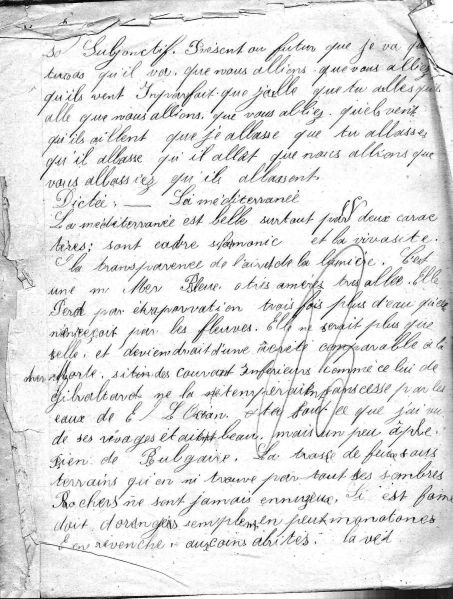 so Subjonctif. Présent ou futur que je va que
tu vas qu'il va. que nous allions. que vous alliez
qu'ils vent Imparfait. que j'aille que tu alles qu'il
alle que nous allions. que vous alliez. qu'els vent
qu'ils aillent que je allasse que tu allasses
qu'il allasse qu'il allât que nous allions que
vous allassiez qu'ils allassent
Dictée. — La méditerranée
La méditerranée est belle surtout par deux carac
tères; sont cadre et la vivasite.
la transparence de l'air de la lumière. C'est
une Mer Bleue. très amères très allee. Elle
Perd par évaporation trois fois plus d'eau qu'elle
par les fleuves. Elle ne serait plus que
selle. et deviendrait d'une âcreté comparable à la
mer Morte. si des courant Inferieurs comme ce lui de
Gibraltard ne la sans cesse par les
eaux de L'Ocean. tout ce que j'ai vu
de ses rivages était beau. mais un peu âpre.
Rien de Bulgaire. La de
terrains qu'on ni trouve par tout ses sombres
Rochers ne sont jamais ennuyeux. Si est
doit d'orangers un peut monotones
en revenche. aux coins abrités. la vét